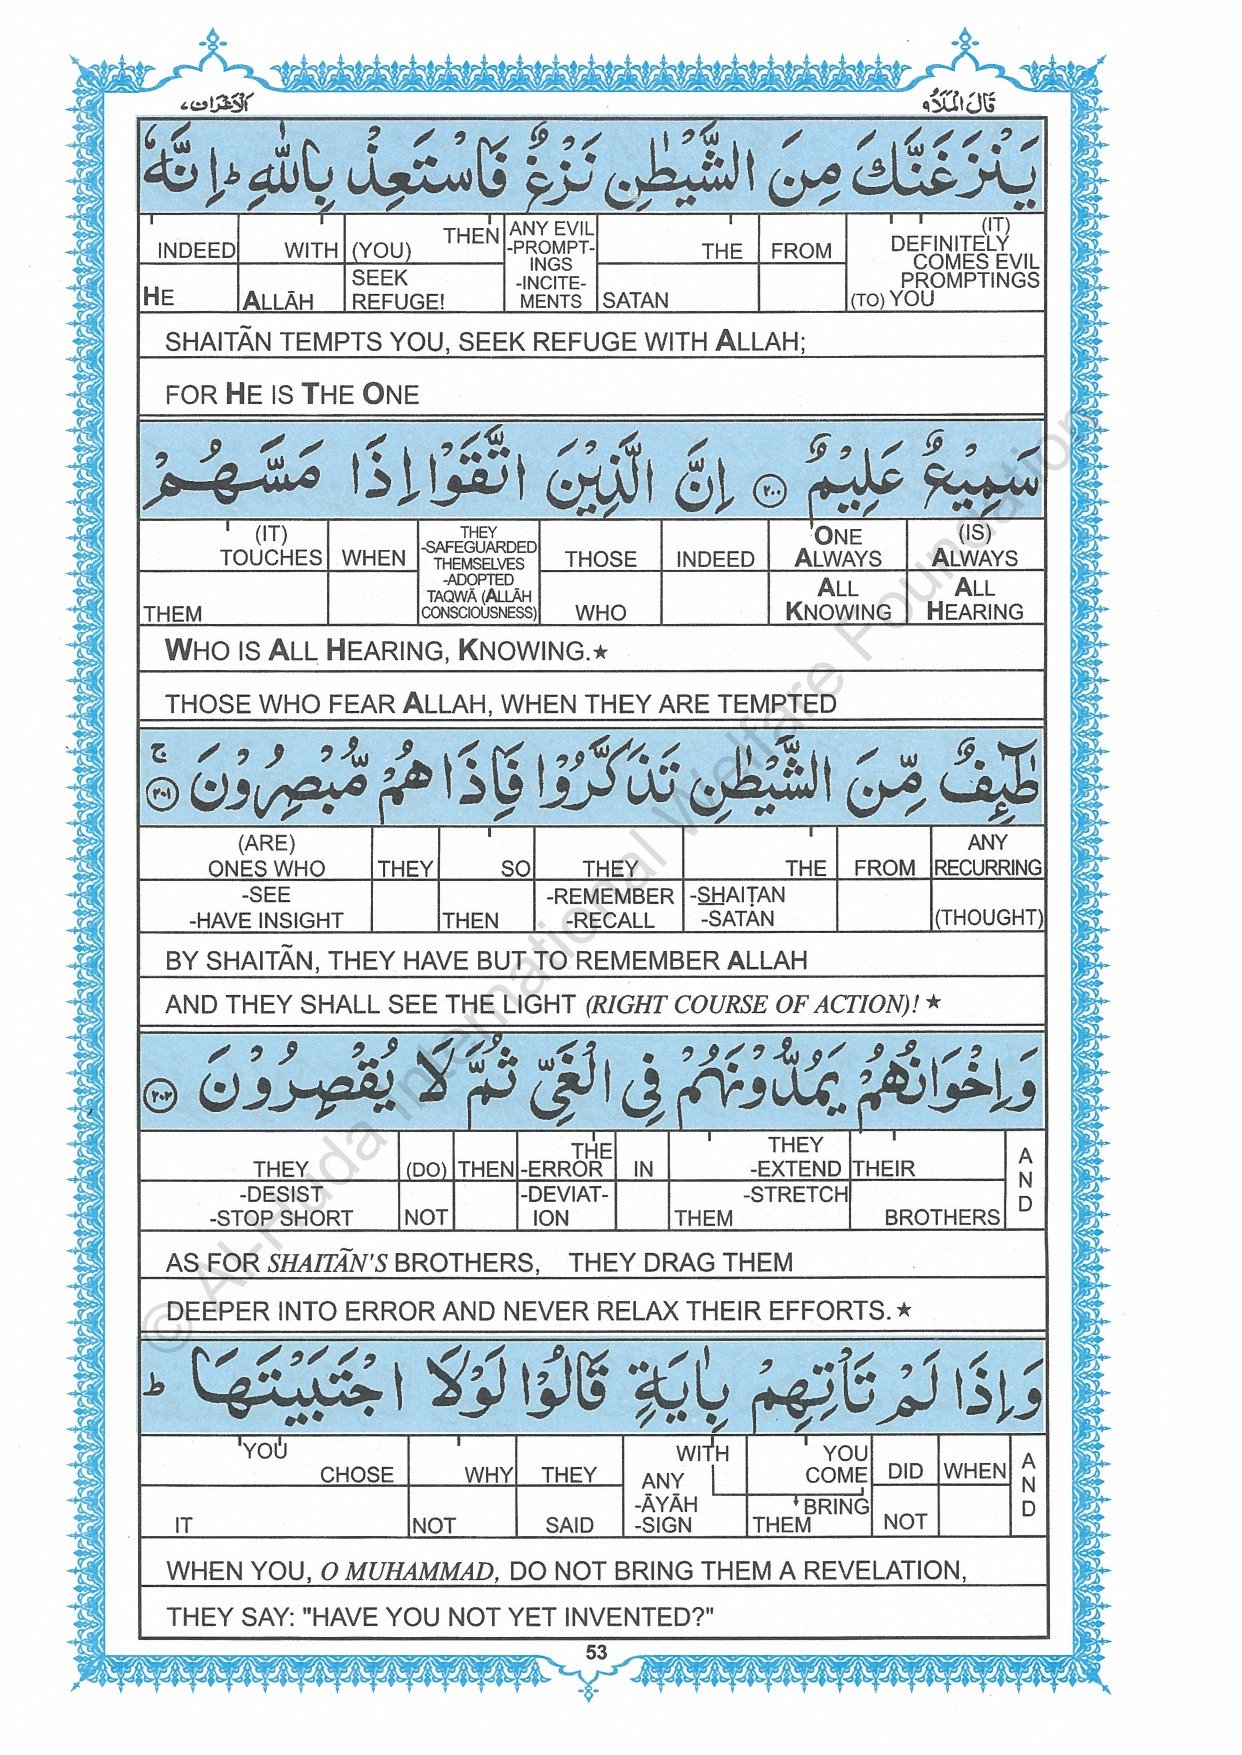 قَالَ الْمَلَاُ ٩
الْاَعْرَاف ٧
يَنْزَغَنَّكَ مِنَ الشَّيْطٰنِ نَزْغٌ فَاسْتَعِذْ بِاللّٰهِ ؕ اِنَّهٗ
(IT) DEFINITELY COMES EVIL PROMPTINGS (TO) YOU
FROM
THE SATAN
ANY EVIL -PROMPT-INGS -INCITE-MENTS
THEN (YOU) SEEK REFUGE!
WITH ALLĀH
INDEED HE
SHAITÃN TEMPTS YOU, SEEK REFUGE WITH ALLAH;
FOR HE IS THE ONE
سَمِيْعٌ عَلِيْمٌ ﴿۲۰۰﴾ اِنَّ الَّذِيْنَ اتَّقَوْا اِذَا مَسَّهُمْ
(IS) ALWAYS ALL HEARING
ONE ALWAYS ALL KNOWING
INDEED
THOSE WHO
THEY -SAFEGUARDED THEMSELVES -ADOPTED TAQWĀ (ALLĀH CONSCIOUSNESS)
WHEN
(IT) TOUCHES THEM
WHO IS ALL HEARING, KNOWING.★
THOSE WHO FEAR ALLAH, WHEN THEY ARE TEMPTED
طٰٓئِفٌ مِّنَ الشَّيْطٰنِ تَذَكَّرُوْا فَاِذَا هُمْ مُّبْصِرُوْنَ ﴿۲۰۱﴾ ج
ANY RECURRING (THOUGHT)
FROM
THE -SHAIṬAN -SATAN
THEY -REMEMBER -RECALL
SO THEN
THEY
(ARE) ONES WHO -SEE -HAVE INSIGHT
BY SHAITÃN, THEY HAVE BUT TO REMEMBER ALLAH
AND THEY SHALL SEE THE LIGHT (RIGHT COURSE OF ACTION)! ★
وَاِخْوَانُهُمْ يَمُدُّوْنَهُمْ فِي الْغَيِّ ثُمَّ لَا يُقْصِرُوْنَ ﴿۲۰۲﴾
AND
THEIR BROTHERS
THEY -EXTEND -STRETCH THEM
IN
THE -ERROR -DEVIAT-ION
THEN
(DO) NOT
THEY -DESIST -STOP SHORT
AS FOR SHAITÃN'S BROTHERS, THEY DRAG THEM
DEEPER INTO ERROR AND NEVER RELAX THEIR EFFORTS.★
وَاِذَا لَمْ تَاْتِهِمْ بِاٰيَةٍ قَالُوْا لَوْلَا اجْتَبَيْتَهَا ؕ
AND
WHEN
DID NOT
YOU COME BRING THEM
WITH ANY -ĀYĀH -SIGN
THEY SAID
WHY NOT
YOU CHOSE IT
WHEN YOU, O MUHAMMAD, DO NOT BRING THEM A REVELATION,
THEY SAY: "HAVE YOU NOT YET INVENTED?"
53
© Al-Huda International Welfare Foundation